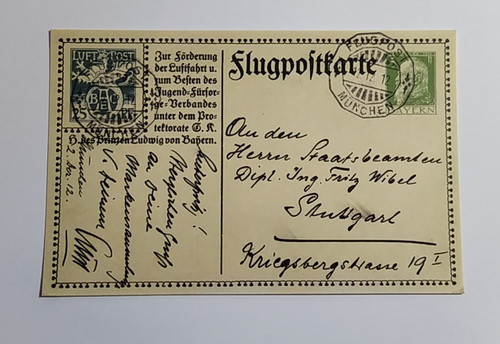 LUFT-POST
BAEC
25
MÜNCHEN
Zur Förderung
der Luftfahrt u.
zum Besten des
Jugend-Fürsor-
ge-Verbandes
unter dem Pro-
tektorate S. K.
H. des Prinzen Ludwig von Bayern.
Flugpostkarte
FLUGPOST
MÜNCHEN
BAYERN
An den
Herrn Staatsbeamten
Dipl. Ing. Fritz Wibel
Stuttgart
Kriegsbergstrasse 19 I
München
2. Apr. 12.
an Deine
Markensammlung
V. Deinem